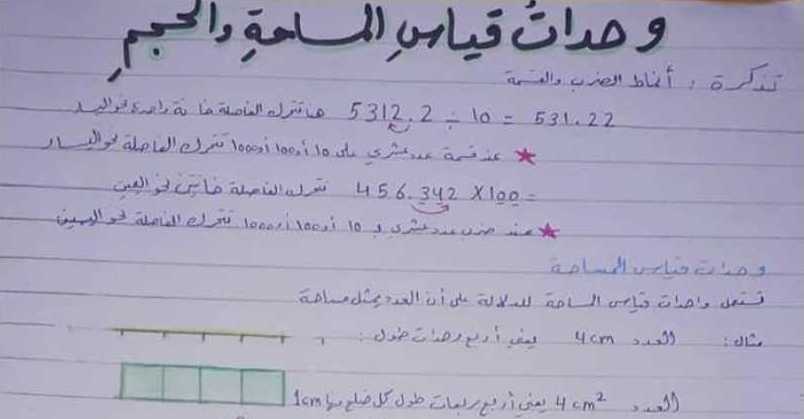 وحداتُ قياسِ المساحةِ والحجمِ
تذكرة : أنماط الضرب والقسمة
5312.2 ÷ 10 = 531.22 هنا تتحرك الفاصلة خانة واحدة نحو اليسار
★ عند قسمة عدد عشري على 10 أو 100 أو 1000 تتحرك الفاصلة نحو اليسار
456.342 X 100 = تتحرك الفاصلة خانتين نحو اليمين
★ عند ضرب عدد عشري بـ 10 أو 100 أو 1000 تتحرك الفاصلة نحو اليمين
وحدات قياس المساحة
تستعمل واحدات قياس المساحة للدلالة على أن العدد يمثل مساحة
مثال : العدد 4cm يعني أربع وحدات طول :
العدد 4cm² يعني أربع مربعات طول كل ضلع بها 1cm